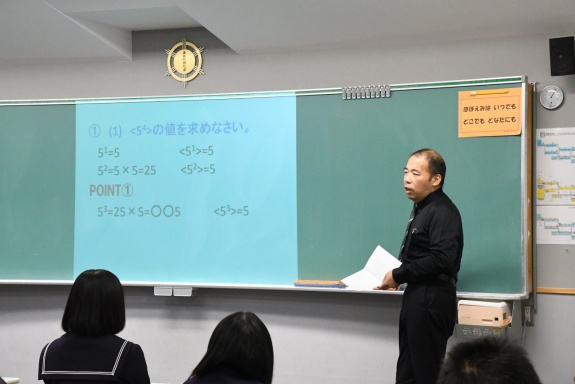 ① (1) <5⁴>の値を求めなさい。
5¹=5 <5¹>=5
5²=5×5=25 <5²>=5
POINT①
5³=25×5=〇〇5 <5³>=5
ほほえみは いつでも
どこでも どなたにも